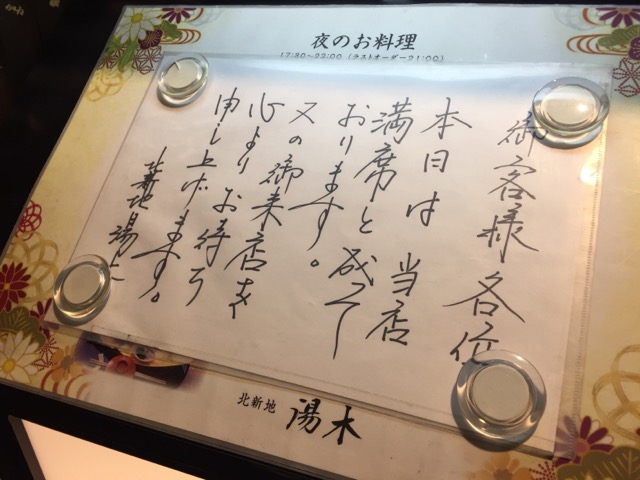 夜のお料理
17:30～22:00 (ラストオーダー21:00)
御客様 各位
本日は 当店
満席と成って
おります。
又の御来店を
心よりお待ち
申し上げます。
北新地 湯木
北新地 湯木